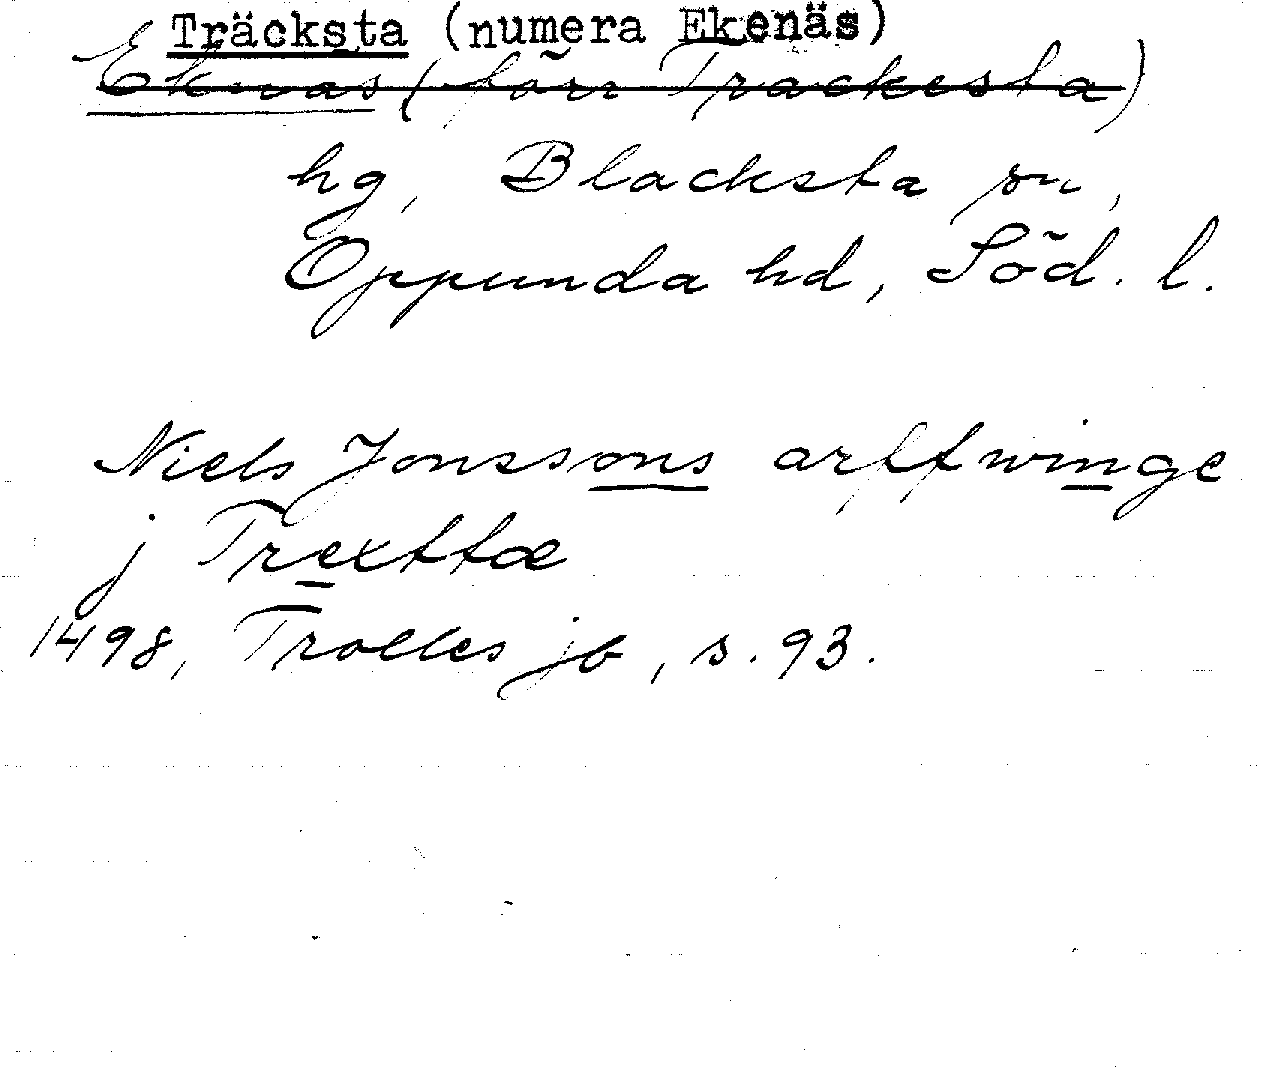 Träcksta (numera Ekenäs)
Eknäs (förr Träckesta)
hg, Blacksta sn,
Oppunda hd, Söd. l.
Niels Jonssons arffwinge
j Trexttæ
1498, Trolles jb, s. 93.